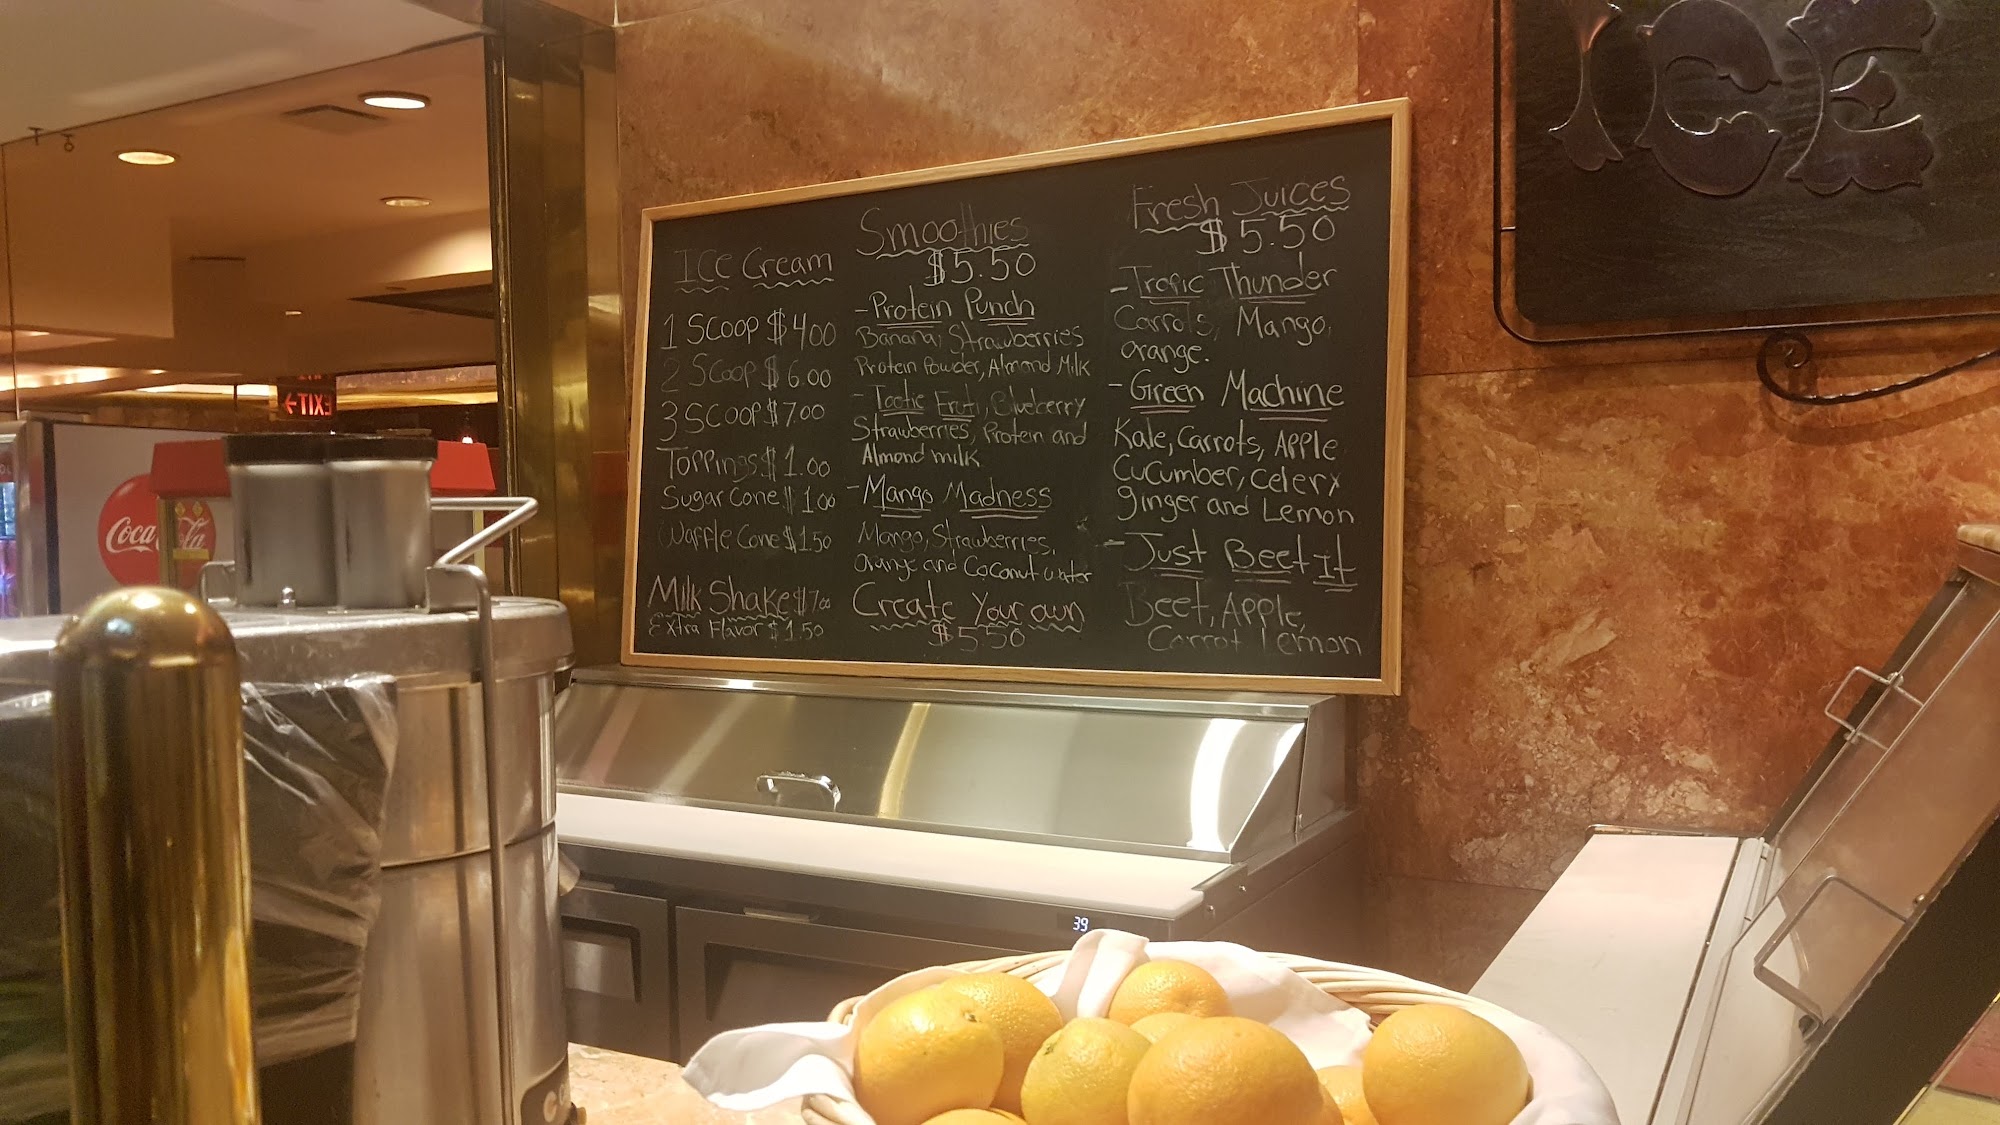 ICE
Ice Cream
1 Scoop $4.00
2 Scoop $6.00
3 Scoop $7.00
Toppings $1.00
Sugar Cone $1.00
Waffle Cone $1.50
Milk Shake $7.00
Extra Flavor $1.50
Smoothies
$5.50
- Protein Punch
Banana, Strawberries
Protein Powder, Almond Milk
- Tootie Fruti, Blueberry
Strawberries, Protein and
Almond milk
- Mango Madness
Mango, Strawberries,
Orange and Coconut water
Create Your own
$5.50
Fresh Juices
$5.50
- Tropic Thunder
Carrots, Mango,
orange.
- Green Machine
Kale, Carrots, Apple
Cucumber, celery
ginger and Lemon
- Just Beet It
Beet, Apple,
Carrot Lemon
EXIT
Coca-Cola
39